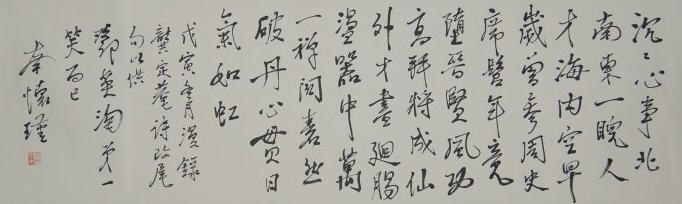 沉〻心事北
南東一睨人
才海內空早
歲曾參周史
席髫年竟
墮晉賢風功
高拜將成仙
外才盡迴腸
盪器中萬
一禪關砉然
破丹心貫日
氣如虹
戊寅月漫錄
龔定菴詩改尾
句以供
鄧英淘弟一
笑而已
南懷瑾